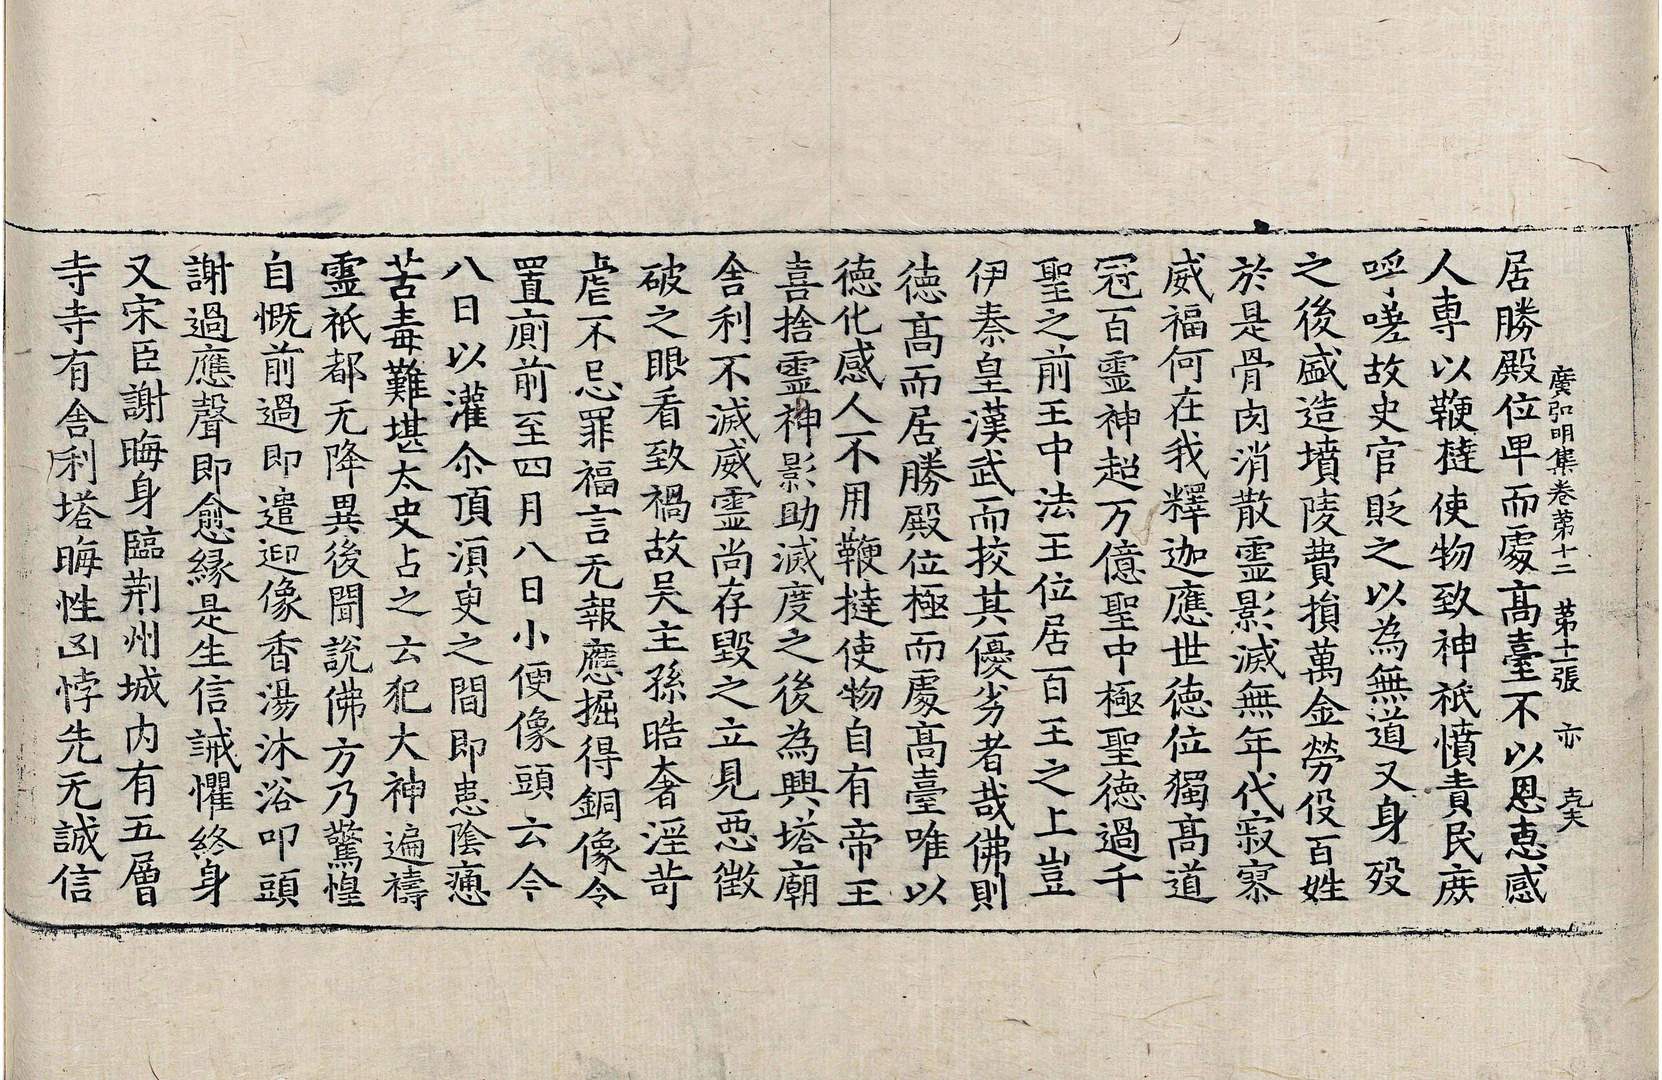 廣弘明集卷第十二　第十二張　亦
居勝殿位卑而處髙臺不以恩恵感
人専以鞭撻使物致神祇憤責民庻
呼嗟故史官貶之以為無道又身殁
之後盛造墳陵費損萬金勞役百姓
於是骨肉消散霊影滅無年代寂寥
威福何在我釋迦應世徳位獨髙道
冠百霊神超万億聖中極聖德過千
聖之前王中法王位居百王之上豈
伊秦皇漢武而挍其優劣者哉佛則
徳髙而居勝殿位極而處髙臺唯以
德化感人不用鞭撻使物自有帝王
喜捨霊神影助滅度之後為興塔廟
舎利不滅威霊尚存毀之立見悪徴
破之眼看致禍故吴主孫晧奢淫苛
虐不忌罪福言无報應掘得銅像令
置廁前至四月八日小便像頭云今
八日以灌尒頂湏臾之間即患陰瘇
苦毒難堪太史占之云犯大神遍禱
霊祇都无降異後聞説佛方乃驚惶
自慨前過即遣迎像香湯沐浴叩頭
謝過應聲即愈縁是生信誡懼終身
又宋臣謝晦身臨荆州城内有五層
寺寺有舎利塔晦性凶悖先无誠信